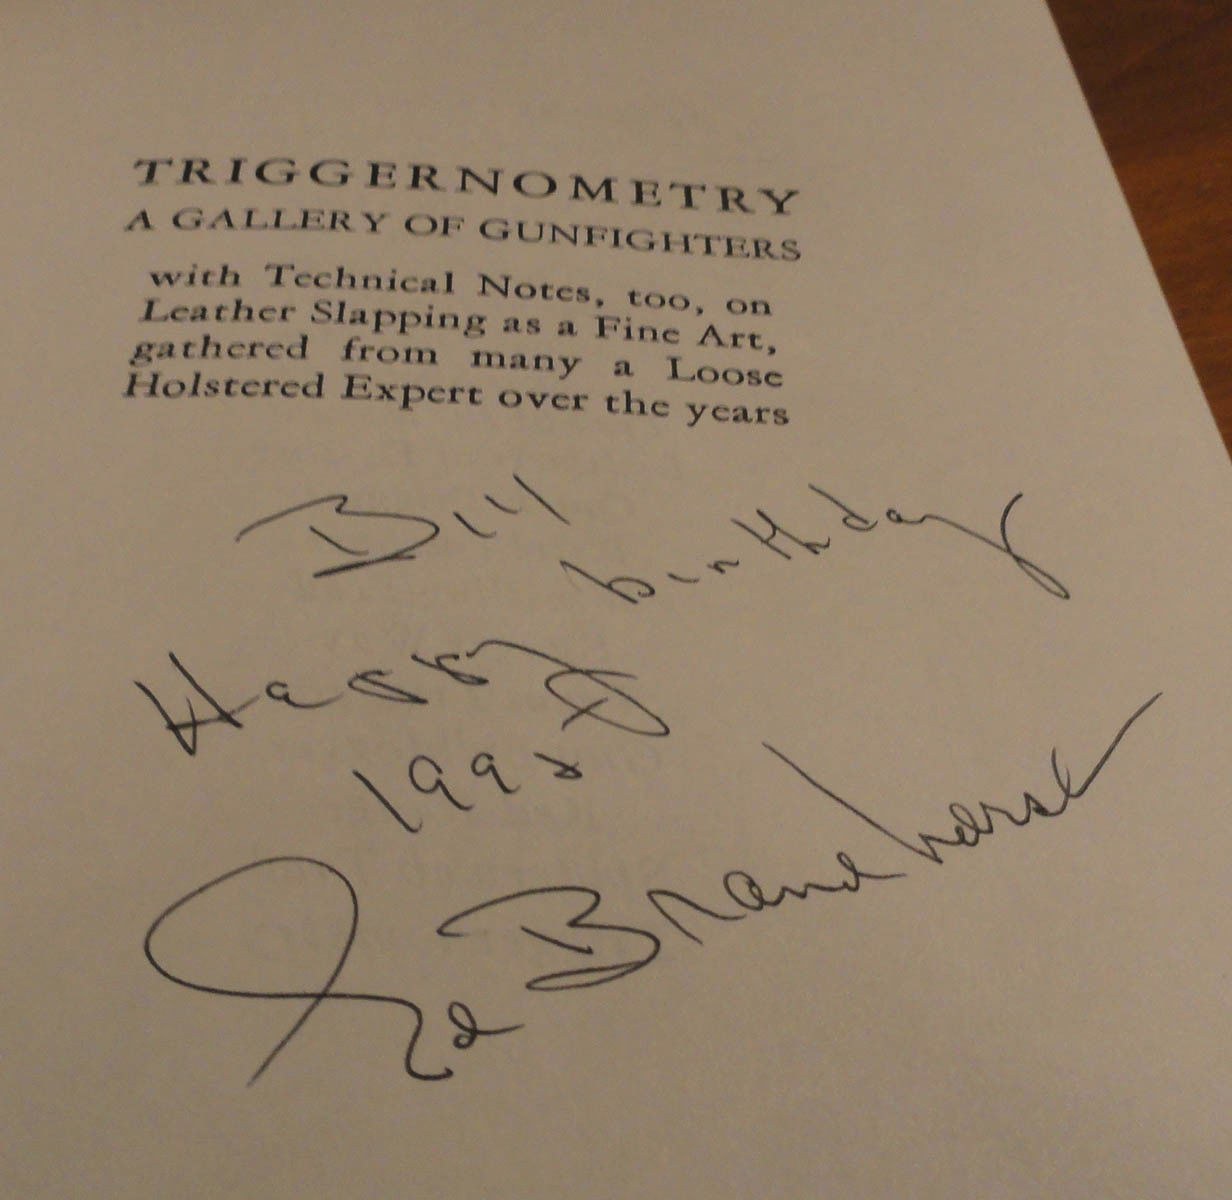 TRIGGERNOMETRY
A GALLERY OF GUNFIGHTERS
with Technical Notes, too, on
Leather Slapping as a Fine Art,
gathered from many a Loose
Holstered Expert over the years
Bill
Happy birthday
Brandhorst